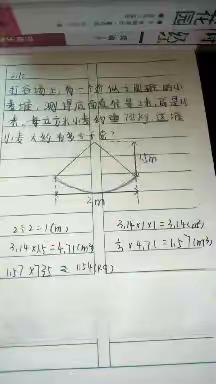 打谷场上有一个近似于圆锥的小
麦堆,测得底面直径是2米,高是1.5
米,每立方米小麦约重735kg,这堆
小麦大约有多少千克?
1.5m
2m
2÷2=1(m)
3.14×1×1=3.14(m²)
3.14×1.5=4.71(m³)
⅓×4.71=1.57(m³)
1.57×735≈1154(kg)